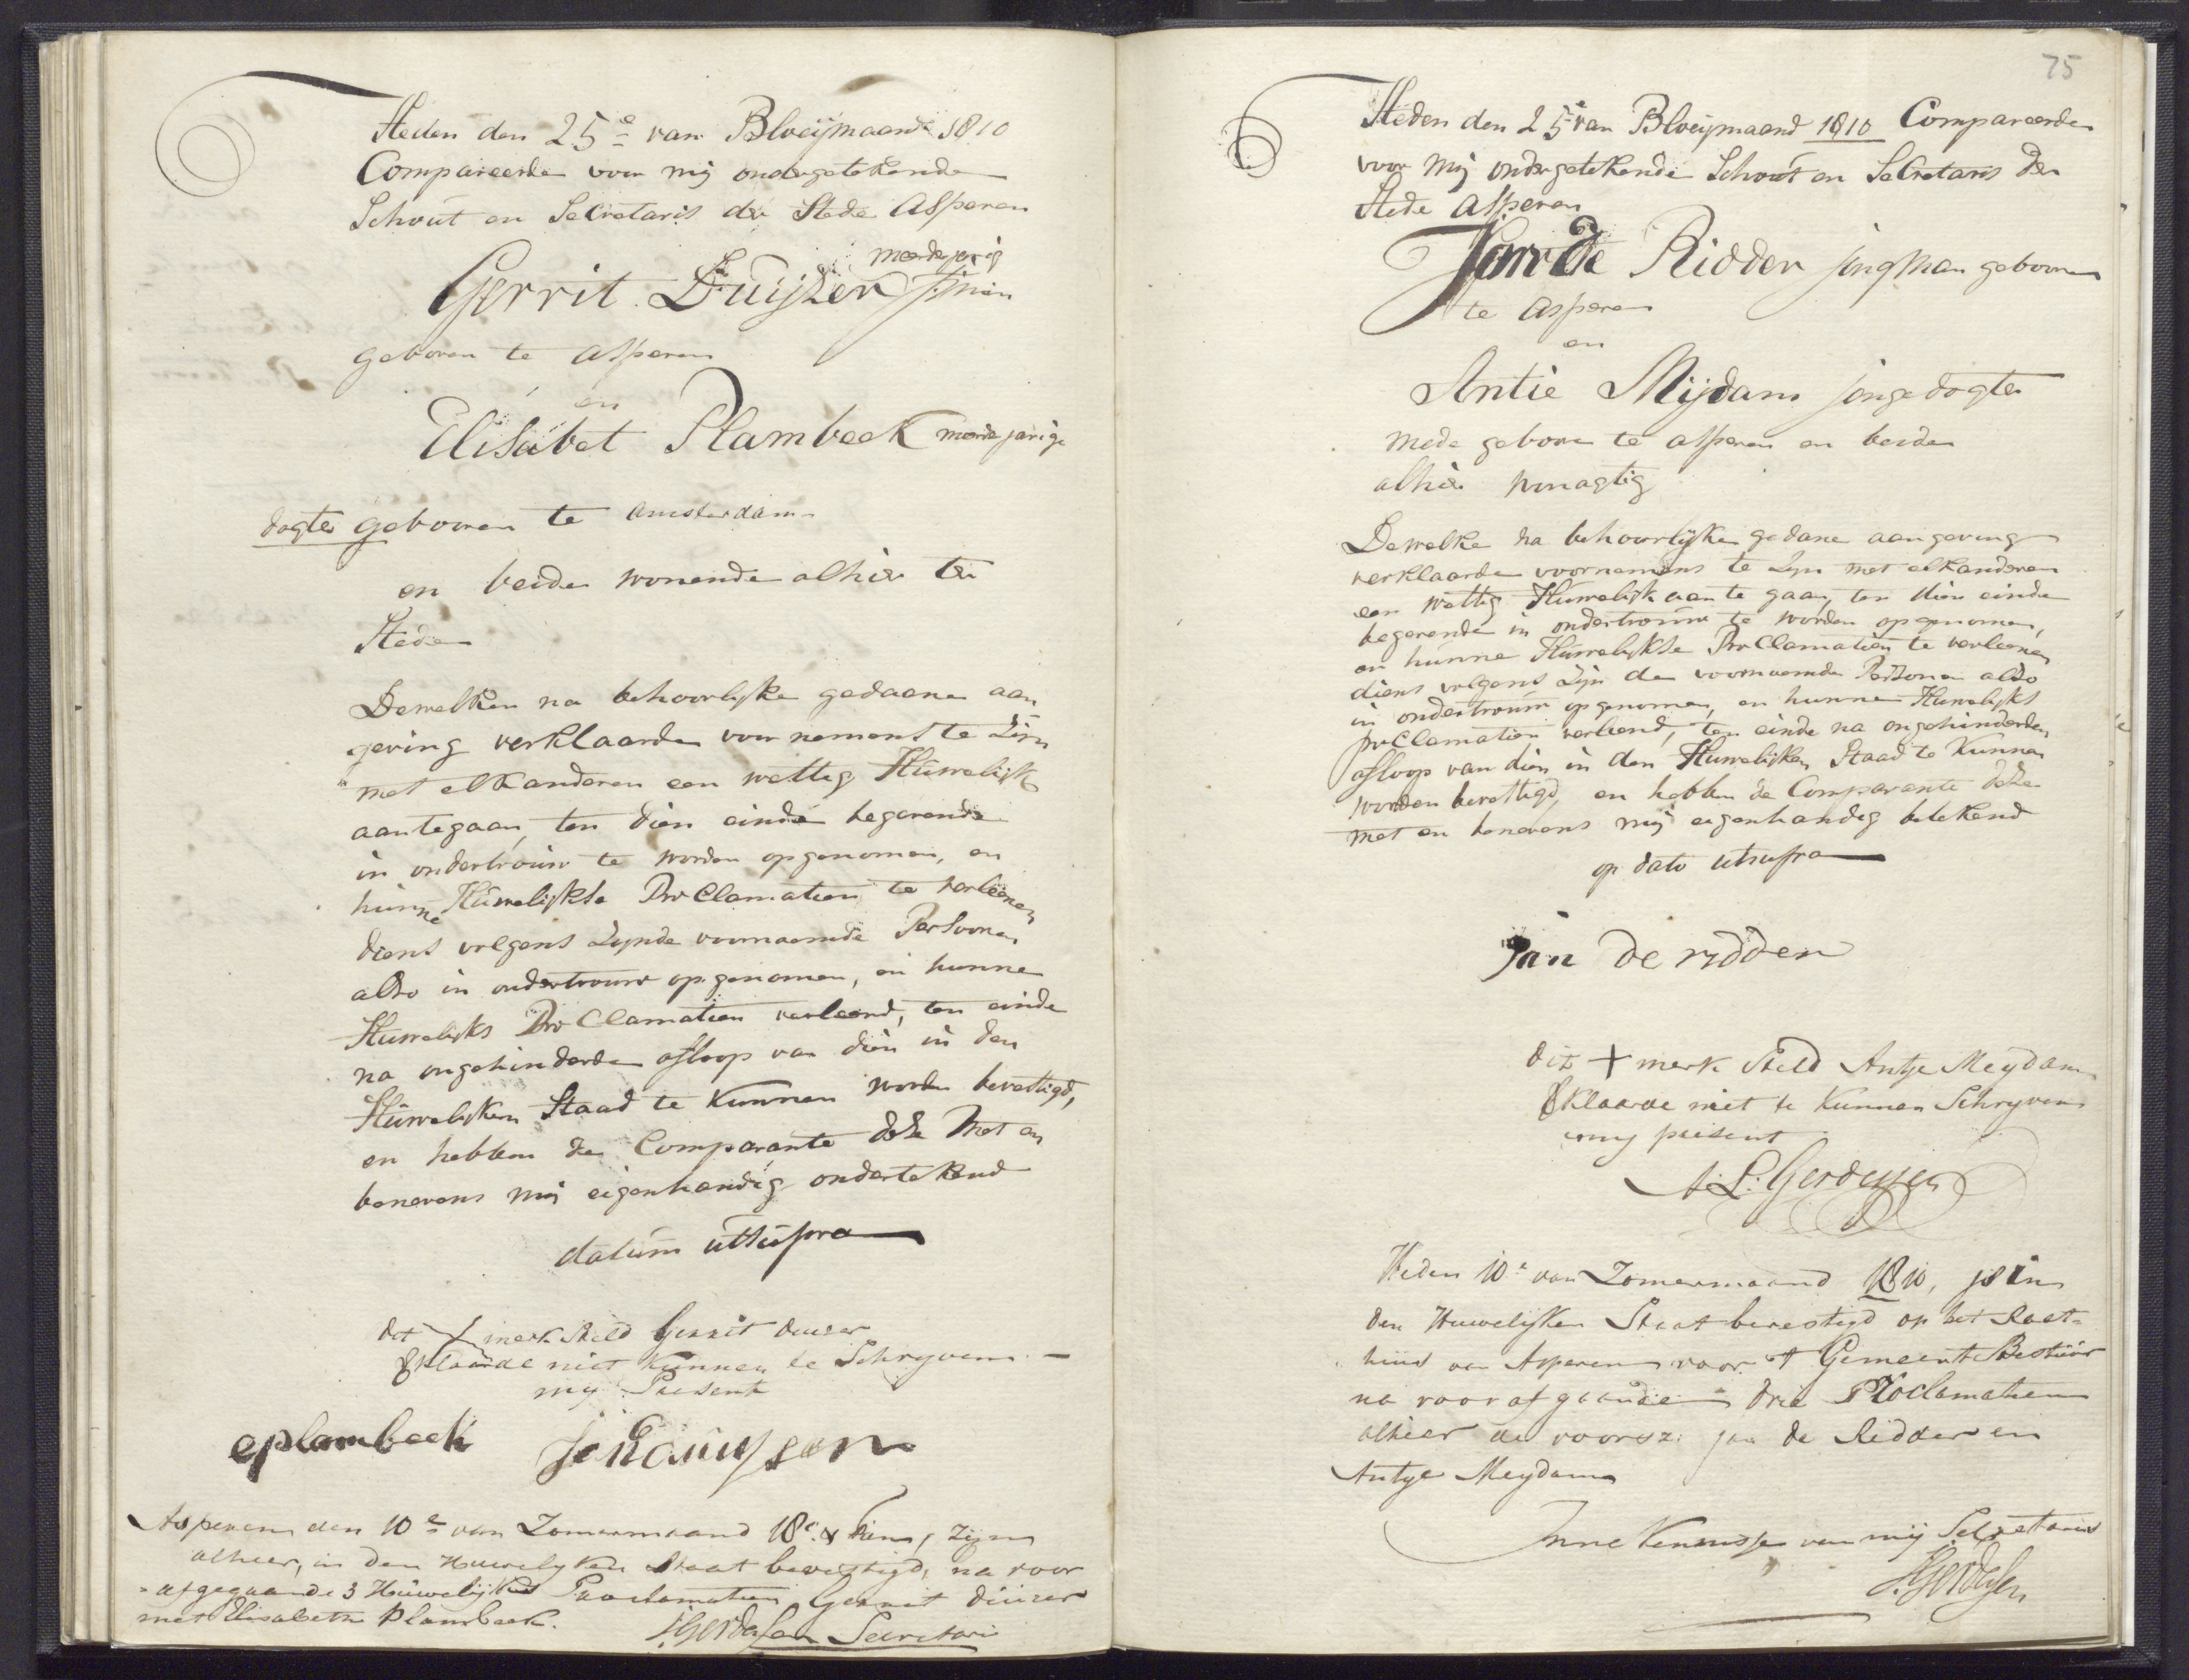 Heden den 25e van Bloeijmaand 1810
Compareerde voor mij ondergetekende
Schout en Secretaris der Stede Asperen
meerderjarig
Gerrit Duijzer j:man
geboren te Asperen
en
Elisabet Plambeek meerderjarige
dogter geboren te Amsterdam
en beide wonende alhier ter
Stede
Dewelken na behoorlijke gedaane aan
geving verklaarden voornemens te Zijn
met elkanderen een wettig Huwelijk
aantegaan, ten dien einde begerende
in ondertrouw te worden opgenomen, en
hunne Huwelijkse Proclamatien te verleenen
diens volgens Zynde voornaemde Persoonen
also in ondertrouw opgenomen, en hunne
Huwelijks Proclamatien verleend, ten einde
na ongehinderde afloop van dien in den
Huwelijken Staad te kunnen worden bevestigd,
en hebben de Comparante deze met en
benevens mij eigenhandig ondertekend
datum utsupra
dit X merk steld Gerrit duizer
verklaarde niet kunnen te Schryven
my Present
eplambeek
Asperen den 10e van Zomermaand 18c & tien, zijn
alhier, in den Huwelyken Staat bevestigd, na voor
afgegaande 3 Huwelijkse Proclamatien Gerrit duizer
met Elisabeth Plambeek.
Gerdessen Secretaris
75
Heden den 25e van Bloeijmaand 1810 Compareerde
voor Mij ondergetekende Schout en Secretaris der
Stede Asperen
Jan de Ridder jongman geboren
te Asperen
en
Antie Mijdam jonge dogter
mede geboren te Asperen en beide
alhier woonagtig
Dewelke na behoorlijke gedane aangeving
verklaarde voornemens te Zijn met elkanderen
een wettig Huwelijk aan te gaan, ten dien einde
begerende in ondertrouw te worden opgenomen,
en hunne Huwelijkse Proclamatien te verleenen
diens volgens Zijn de voornaemde Persoonen also
in ondertrouw opgenomen, en hunne Huwelijks
proclamatien verleend, ten einde na ongehinderde
afloop van dien in den Huwelijken Staad te kunnen
worden bevestigd, en hebben de Comparante deze
met en benevens mij eigenhandig getekend
op dato utsupra
Jan de ridder
dit + merk steld Antje Meydam
verklaarde niet te kunnen Schryven
my present
A L: Gerdessen
Heden 10e van Zomermaand 1810, is in
den Huwelijken Staat bevestigd op het Raet-
huis van Asperen voor 't Gemeente Bestuur
na voorafgaande drie Proclamatien
alhier de voorsz: Jan de Ridder en
Antje Meydam
In kennisse van mij Secretaris
Gerdessen